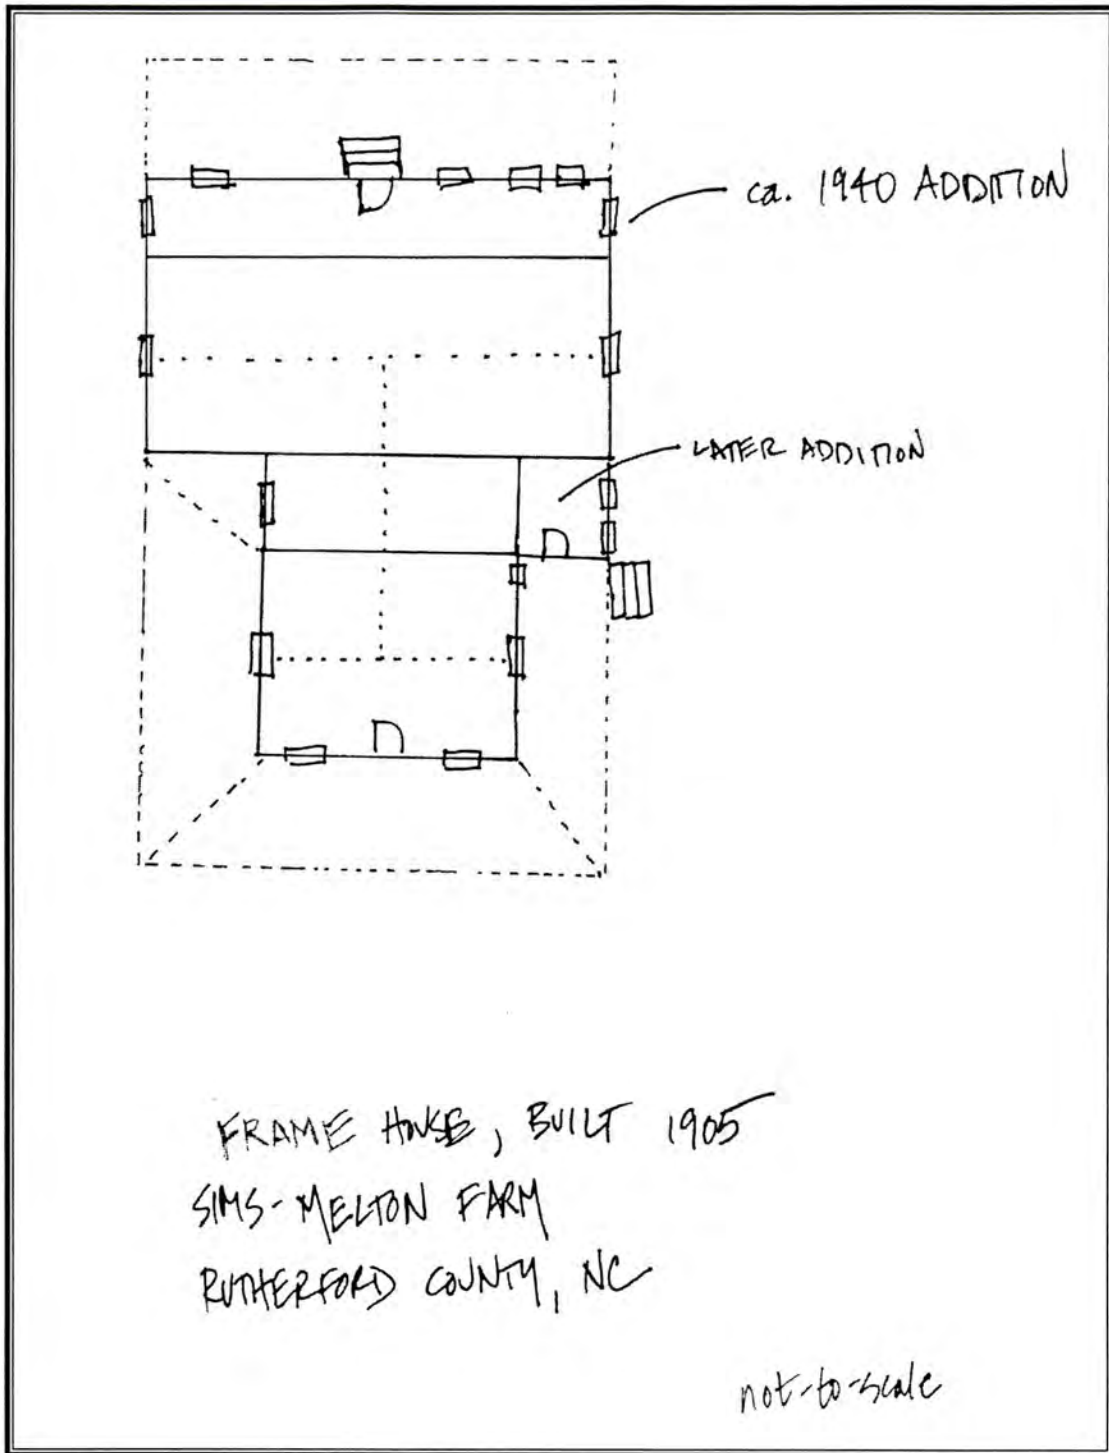 ca. 1940 ADDITION
LATER ADDITION
FRAME HOUSE, BUILT 1905
SIMS-MELTON FARM
RUTHERFORD COUNTY, NC
not-to-scale